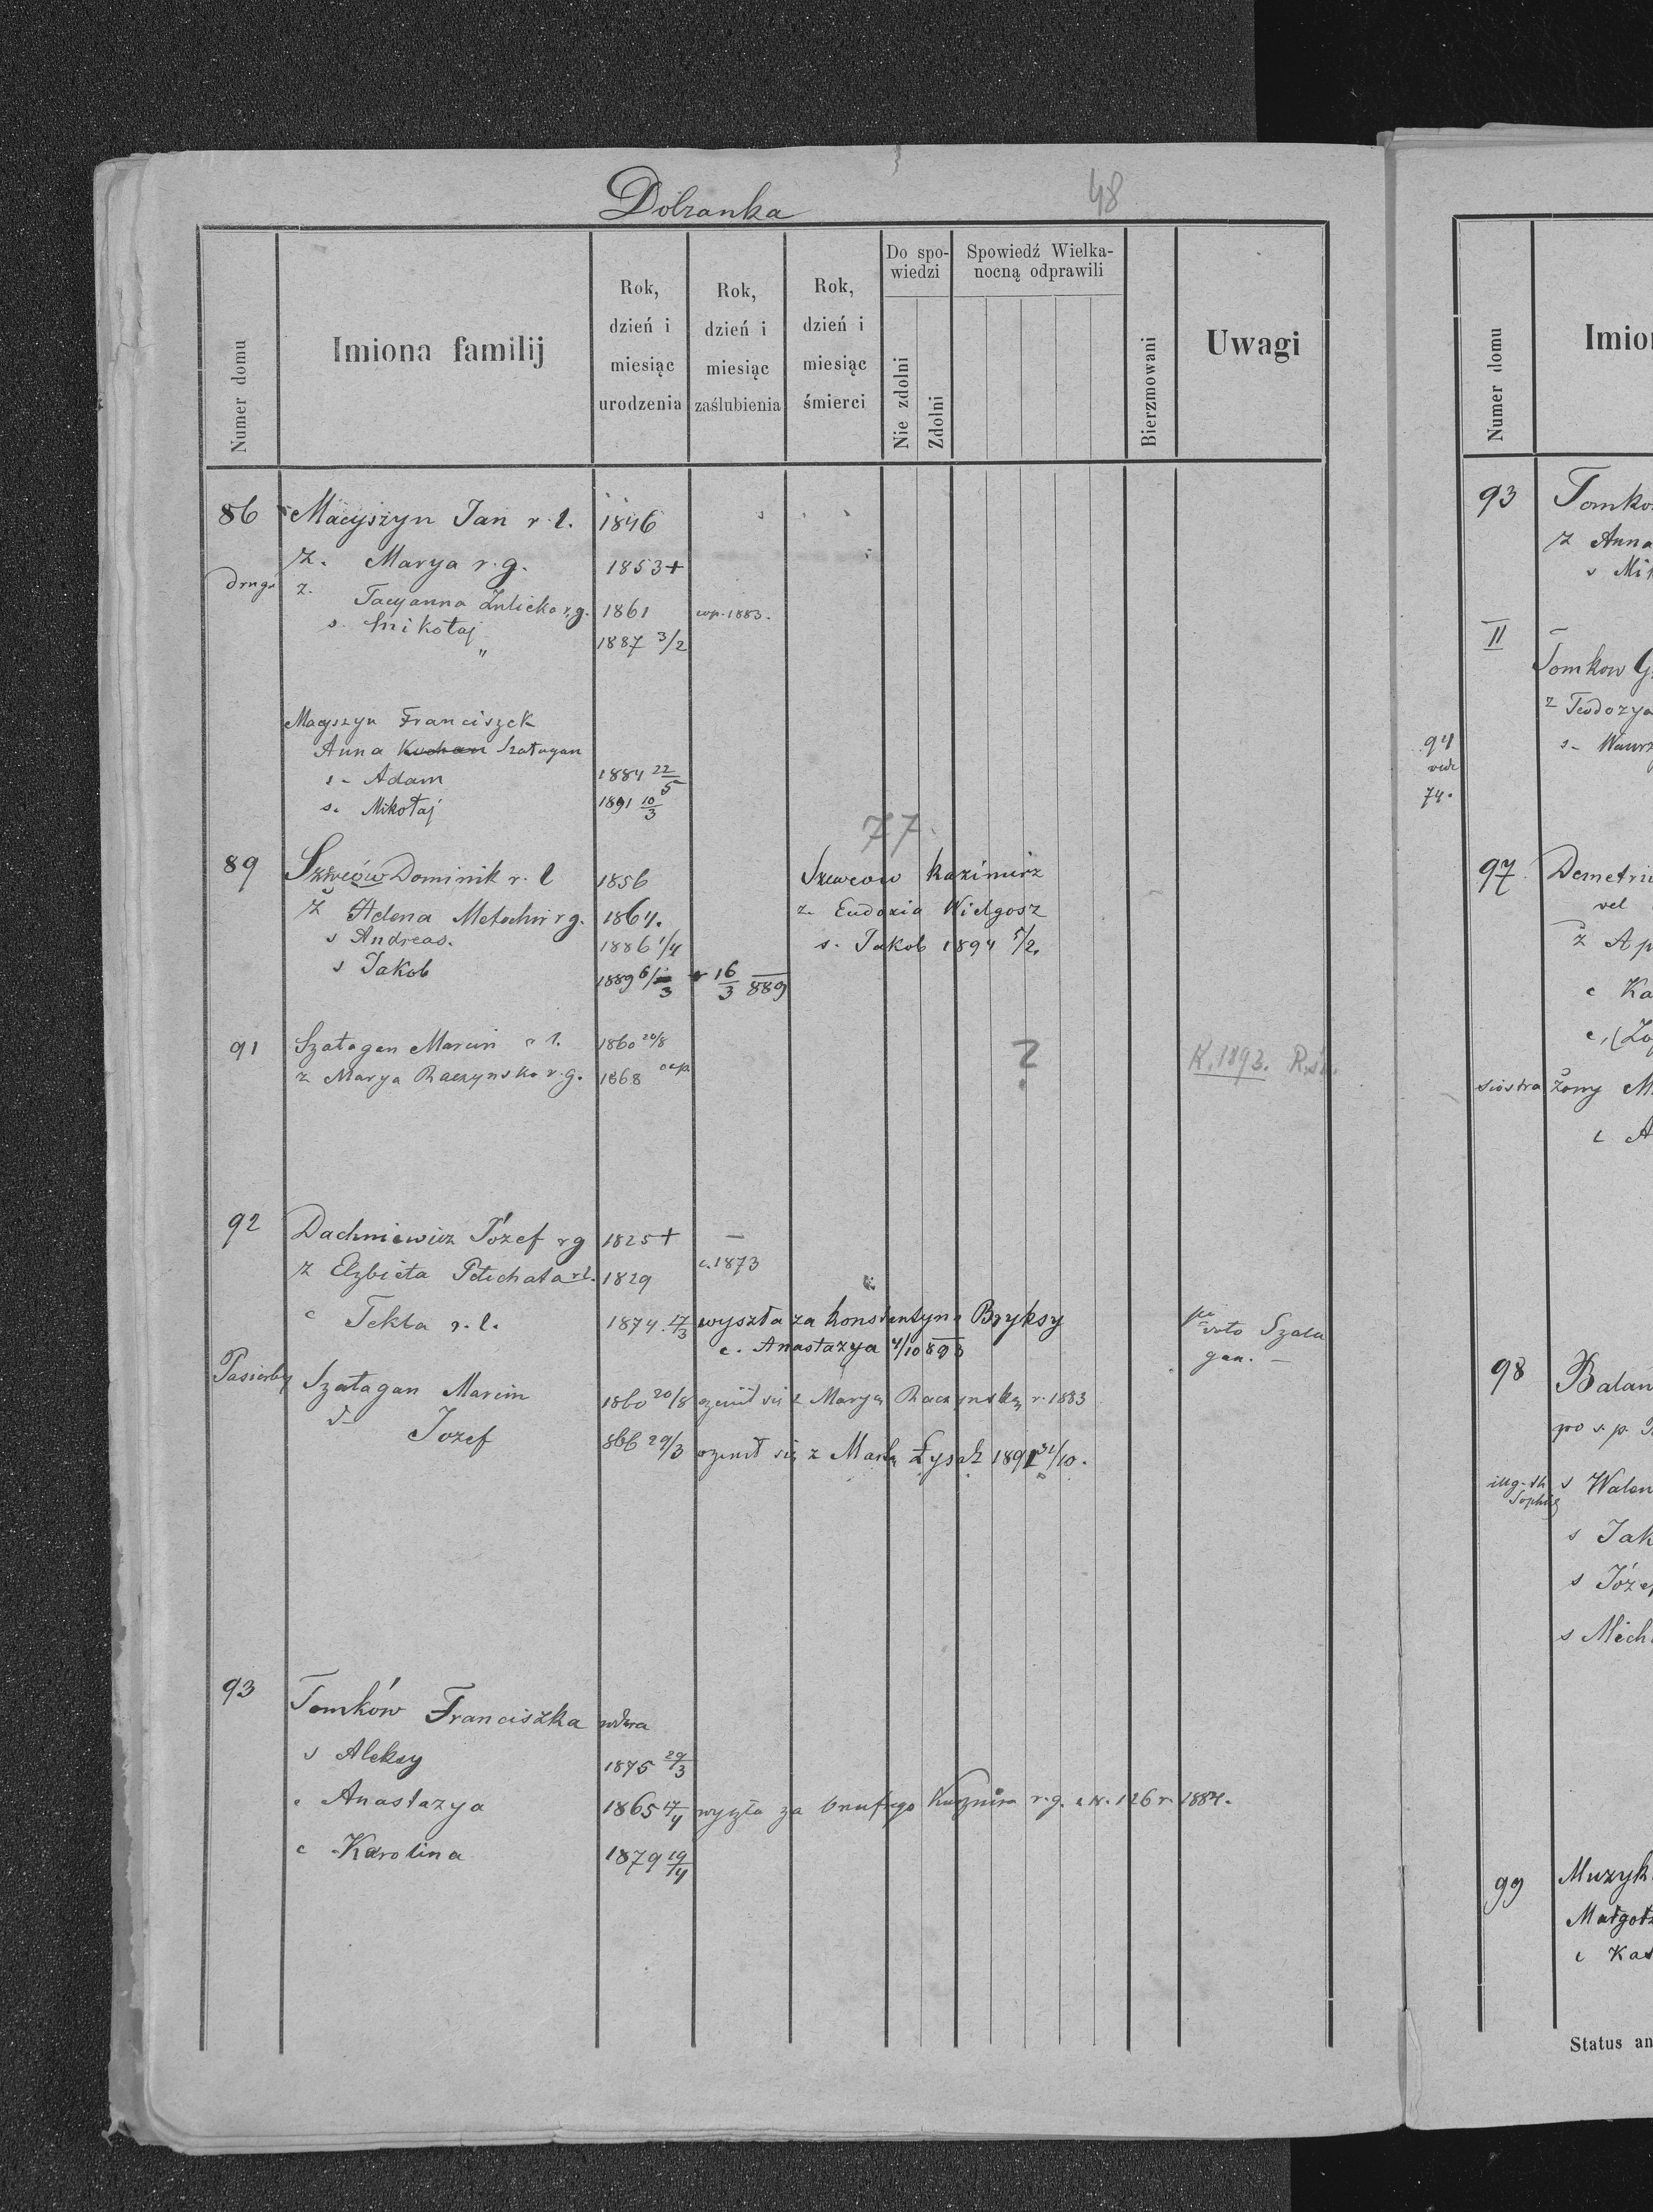 Dobranka 48
Numer domu
Imiona familij
Rok, dzień i miesiąc urodzenia
Rok, dzień i miesiąc zaślubienia
Rok, dzień i miesiąc śmierci
Do spo-
wiedzi
Nie zdolni
Zdolni
Spowiedź Wielka-
nocną odprawili
Bierzmowani
Uwagi
86 Macyszyn Jan r. l. 1846
Ż. Marya r. g. 1853 +
druga ż. Tacyanna r. g. 1861 cop. 1883.
s. Mikołaj " 1887 3/2
Macyszyn Franciszek
Anna Szałagan
s- Adam 1884 22/5
s. Mikołaj 1891 10/3
77.
89 Szwców Dominik r. l 1856 Szewcow Kazimirz
Ż Helena r g. 1864. ż. Eudoxia Wielgosz
s Andreas. 1886 1/4 s. Jakob 1894 5/2.
s Jakob 1889 6/3 16/3 889
91 Szałagan Marcin r l. 1860 20/8 ? K. 1893.
ż Marya Raczynska r. g. 1868
92 Dachniewicz Józef r g 1825 + –
Ż Elzbieta r l. 1829 c. 1873
c Tekla r. l. 1874. 17/3 wyszła za Konstantyna Bryksy
c. Anastazya 4/10 893
Szała
gan. –
Pasierby Szałagan Marcin 1860 20/8 ożenił się z Maryą Raczynską r. 1883
Jozef 866 29/3 ozenił się z 31/10.
93 Tomków Franciszka wdwa
s Aleksy 1875 29/3
c Anastazya 1865 17/4 wyszła za r. g. N. 126 r 1884.
c Karolina 1879 19/4
Numer domu
Imio
93 Tomko
ż Anna
s Mi
II
Tomkow G
ż Teodozya
s- Wawrz
94
vide
74.
97 Demetri
vel
ż Ap
c Ka
siostra żony M
c A
98 Balan
po s. p.
Sophię
s Walen
s Jak
s Józe
s Mich
99 Muzyk
Małgoż
c Kas
Status an